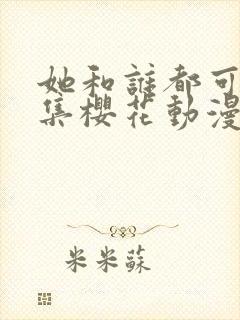 她和誰都可
集櫻花動漫
米米蘇